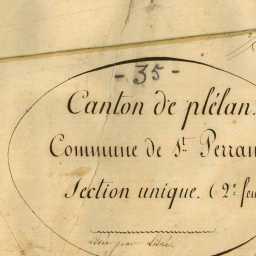 - 35 -
Canton de plélan.
Commune de St. Perran
Section unique. (2e feu